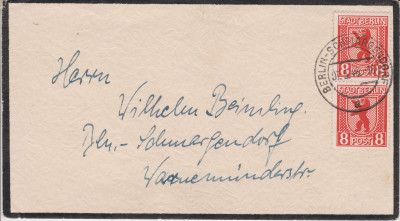 STADT BERLIN
8 POST 8
BERLIN-SCHMARGENDORF
STADT BERLIN
8 POST 8
Herrn
Wilhelm
Bln.-Schmargendorf
Warnemünderstr.